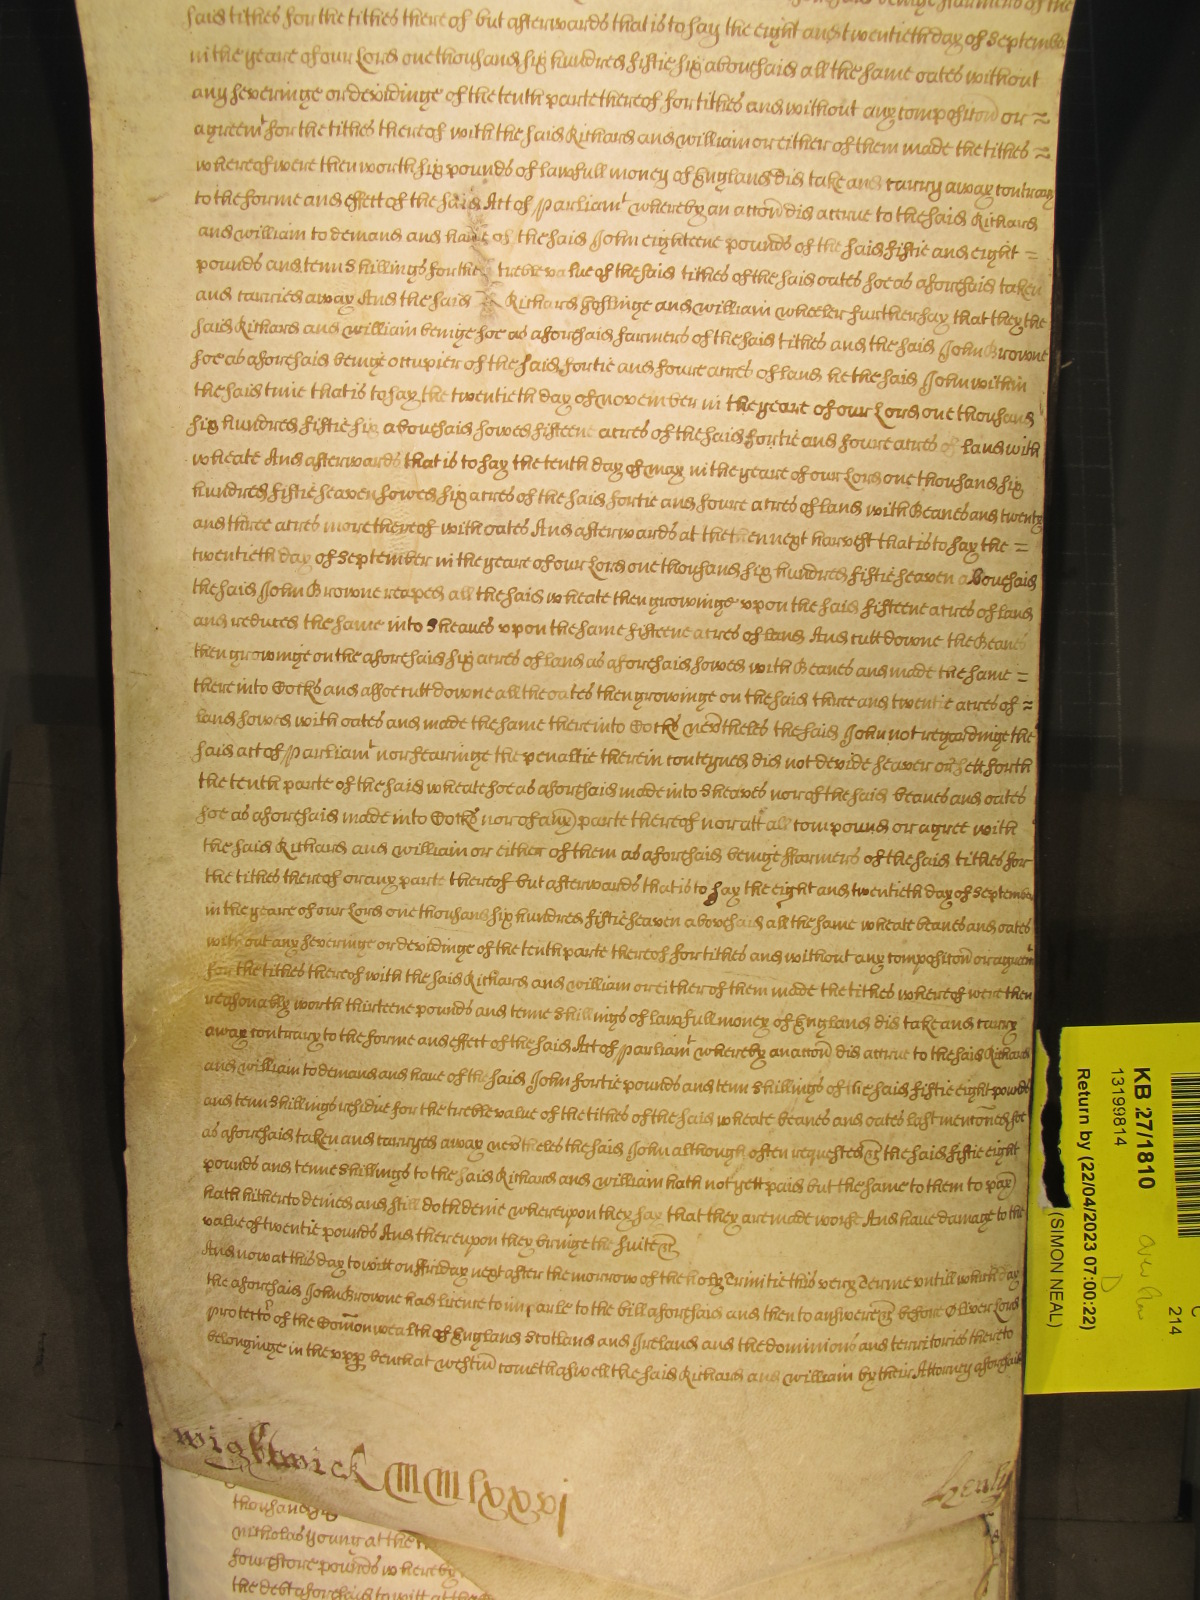 said tithes for the tithes there of but afterwards that is to say the eight and twentieth day of September
in the yeare of our Lord one thousand six hundred fiftie six abovesaid all the same oates without
any severinge or devidinge of the tenth parte thereof for tithes and without any composicōn or
agreemt for the tithes there of with the said Richard and william or either of them made the tithes
whereof were then worth six pounds of lawfull money of England did take and carry away contrary
to the forme and effect of the said Act of Parliamt whereby an accōn did accrue to the said Richard
and william to demand and have of the said John eighteene pounds of the said fiftie and eight =
pounds and tenn shillings for the treble value of the said tithes of the said oates soe as aforesaid taken
and carried away And the said Richard and william wheeler further say that they the
said Richard and william beinge soe as aforesaid farmers of the said tithes and the said John Browne
soe as aforesaid beinge occupier of the said fortie and foure acres of land he the said John within
the said time that is to say the twentieth day of november in the yeare of our Lord one thousand
six hundred fiftie six abovesaid sowed fifteene acres of the said fortie and foure acres of land with
wheate And afterwards that is to say the tenth day of may in the yeare of our Lord one thousand six
hundred fiftie seaven sowed six acres of the said fortie and foure acres of land with Beanes and twenty
and three acres more thereof with oates And afterwards at the then next harvest that is to say the =
twentieth day of September in the yeare of our Lord one thousand six hundred fiftie seaven abovesaid
the said John Browne reaped all the said wheate then growinge upon the said fifteene acres of land
and reduced the same into Sheaves upon the same fifteene acres of land And cutt downe the Beanes
then growinge on the aforesaid six acres of land as aforesaid sowed with Beanes and made the same =
there into Cocks and alsoe cutt downe all the oates then growinge on the said three and twentie acres of
land sowed with oates and made the same there into Cocks nevͬtheles the said John not regardinge the
said act of Parliamt nor fearinge the penaltie therein conteyned did not devide seaver or sett forth
the tenth parte of the said wheate soe as aforesaid made into sheaves nor of the said beanes and oates
soe as aforesaid made into Cocks nor of any parte thereof nor att all compound or agree with
the said Richard and william or either of them as aforesaid beinge ffarmers of the said tithes for
the tithes thereof or any parte thereof but afterwards that is to say the eight and twentieth day of September
in the yeare of our Lord one thousand six hundred fiftie seaven abovesaid all the same wheate beanes and oates
without any severinge or devidinge of the tenth parte thereof for tithes and without any composicōn or agreemt
for the tithes thereof with the said Richard and william or either of them made the tithes whereof were then
reasonably worth thirteene pounds and tenne shillings of lawfull money of England did take and carry
away contrary to the forme and effect of the said Act of Parliamt whereby an accōn did accrue to the said Richard
and william to demand and have of the said John fortie pounds and tenn shillings of the said fiftie eight pounds
and tenn shillings residue for the treble value of the tithes of the said wheate beanes and oates last mencōned soe
as aforesaid taken and carryed away nevͬtheles the said John although often requested &c the said fiftie eight
pounds and tenne shillings to the said Richard and william hath not yett paid but the same to them to pay
hath hitherto denied and still doth denie whereupon they say that they are made worse And have damage to the
value of twentie pounds And thereupon they bringe the suite &c
And now at this day to witt on ffriday next after the morrow of the holy Trinitie this very Terme untill which day
the aforesaid John Browne had licence to imparle to the bill aforesaid and then to answere &c before Oliver Lord
Protectͬ of the Com̄on wealth of England Scotland and Ireland and the dominions and territories thereto
belonginge in the upp bench at westm̄ come th aswell the said Richard and william by their Attorney aforesaid
wightwick
Henly
thousand six
nicholas young at the
fourscore pounds whereby
the debt aforesaid to witt at the
KB 27/1810
13199814
Return by (22/04/2023 07:00:22)
(SIMON NEAL)
214